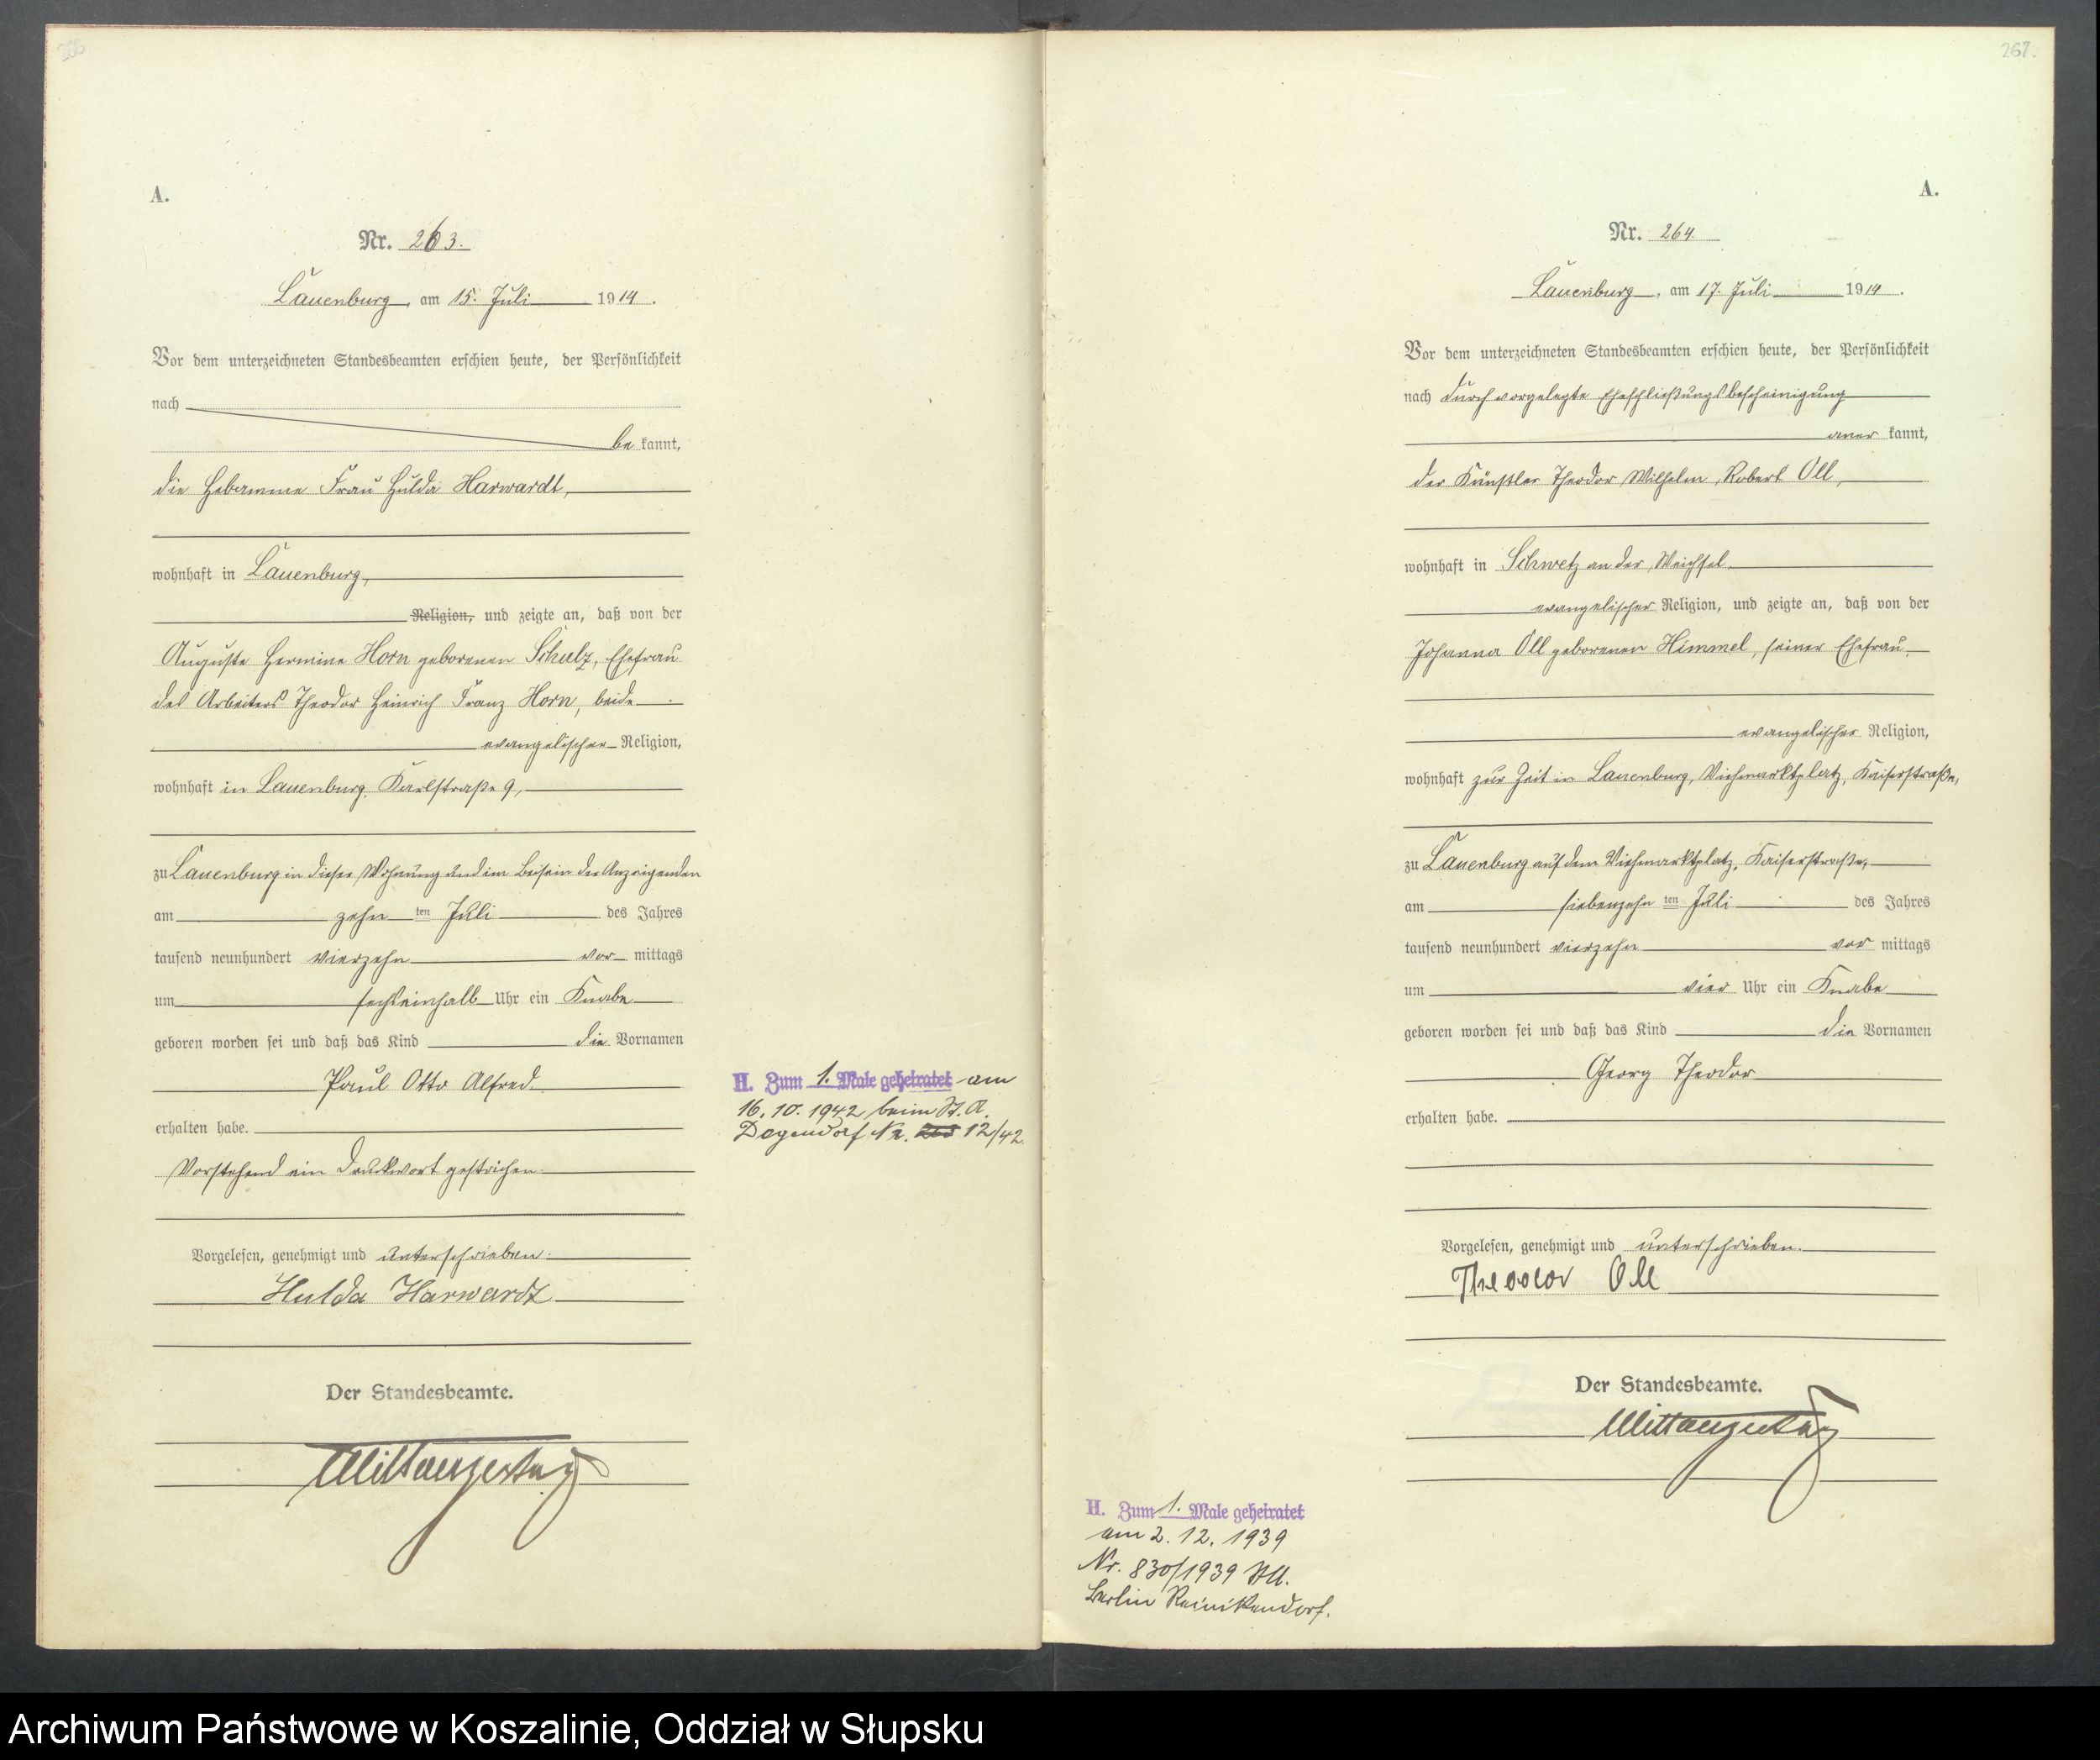 266
A.
Nr. 263.
Lauenburg, am 15. Juli 1914.
Vor dem unterzeichneten Standesbeamten erschien heute, der Persönlichkeit
nach
be kannt,
die Hebamme Frau Hulda Harwardt,
wohnhaft in Lauenburg,
Religion, und zeigte an, daß von der
Auguste Hermine Horn geborenen Schulz, Ehefrau
des Arbeiters Theodor Heinrich Franz Horn, beide
evangelischer Religion,
wohnhaft in Lauenburg, Karlstraße 9,
zu Lauenburg in dieser Wohnung und im Beisein der Anzeigenden
am zehn ten Juli des Jahres
tausend neunhundert vierzehn vor mittags
um sechseinhalb Uhr ein Knabe
geboren worden sei und daß das Kind die Vornamen
Paul Otto Alfred
erhalten habe.
Vorstehend ein Druckwort gestrichen.
Vorgelesen, genehmigt und unterschrieben.
Hulda Harwardt
Der Standesbeamte.
H. Zum 1. Male geheiratet am
16.10.1942 beim St. A.
Degendorf Nr. 12/42.
267.
A.
Nr. 264.
Lauenburg, am 17. Juli 1914.
Vor dem unterzeichneten Standesbeamten erschien heute, der Persönlichkeit
nach durch vorgelegte Eheschließungsbescheinigung
aner kannt,
der Künstler Theodor Wilhelm Robert Oll,
wohnhaft in Schwetz an der Weichsel
evangelischer Religion, und zeigte an, daß von der
Johanna Oll geborenen Himmel, seiner Ehefrau,
evangelischer Religion,
wohnhaft zur Zeit in Lauenburg, Viehmarktplatz, Kaiserstraße,
zu Lauenburg auf dem Viehmarktplatz, Kaiserstraße,
am siebenzehn ten Juli des Jahres
tausend neunhundert vierzehn vor mittags
um vier Uhr ein Knabe
geboren worden sei und daß das Kind die Vornamen
Georg Theodor
erhalten habe.
Vorgelesen, genehmigt und unterschrieben.
Theodor Oll
Der Standesbeamte.
H. Zum 1. Male geheiratet
am 2.12.1939
Nr. 830/1939 StA.
Berlin Reinikendorf.
Archiwum Państwowe w Koszalinie, Oddział w Słupsku